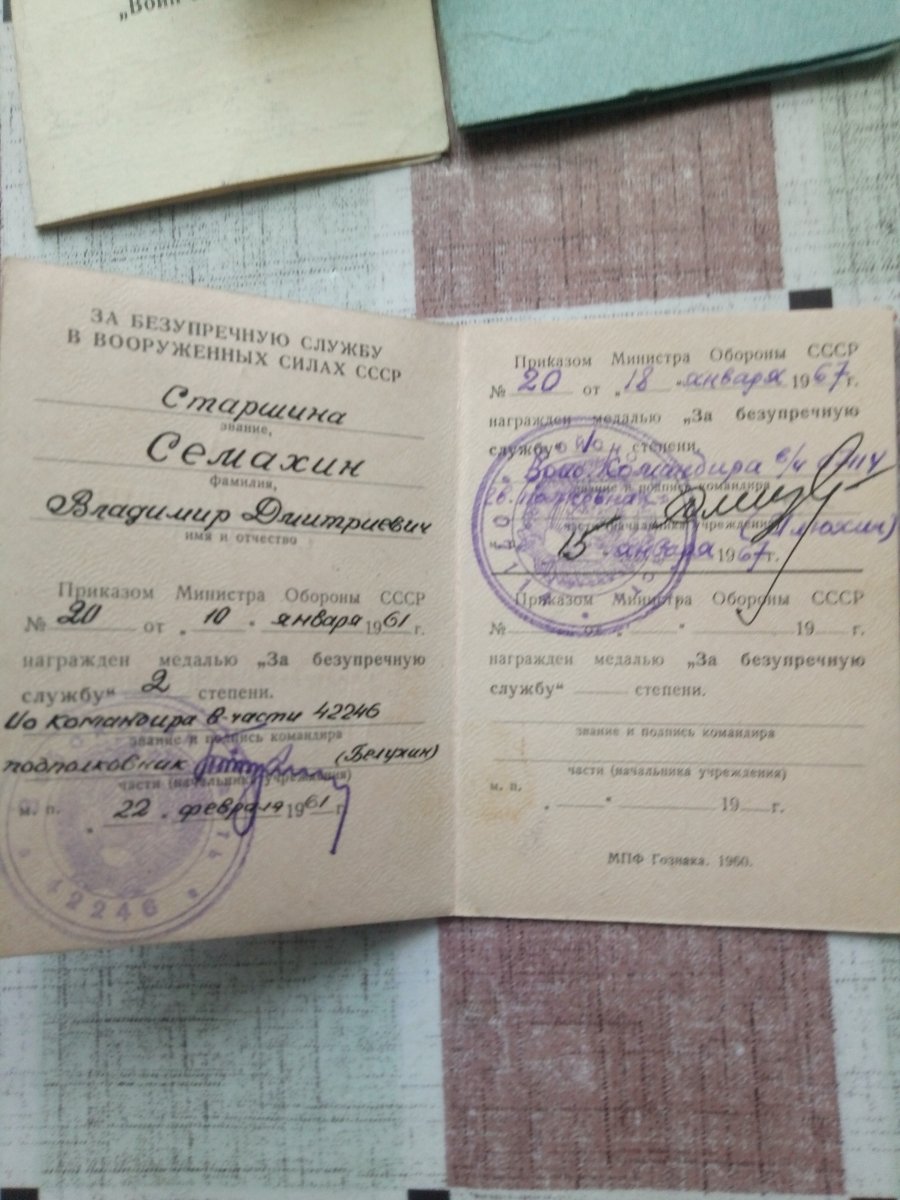 „Воин
ЗА БЕЗУПРЕЧНУЮ СЛУЖБУ
В ВООРУЖЕННЫХ СИЛАХ СССР
Старшина
звание,
Семахин
фамилия,
Владимир Дмитриевич
имя и отчество
Приказом Министра Обороны СССР
№ 20 от „10" января 1961 г.
награжден медалью „За безупречную
службу“ 2 степени.
Ио командира в-части 42246
звание и подпись командира
подполковник (Белухин)
части (начальника учреждения)
м. п. „22" февраля 1961 г.
42246
Приказом Министра Обороны СССР
№ 20 от „18" января 1967 г.
награжден медалью „За безупречную
службу“ 1 степени.
Командира в/ч
звание и подпись командира
части (начальника учреждения)
м. п. 15 января 1967 г.
Приказом Министра Обороны СССР
№ от „ " 19 г.
награжден медалью „За безупречную
службу“ степени.
звание и подпись командира
части (начальника учреждения)
м. п. „ " 19 г.
МПФ Гознака. 1960.